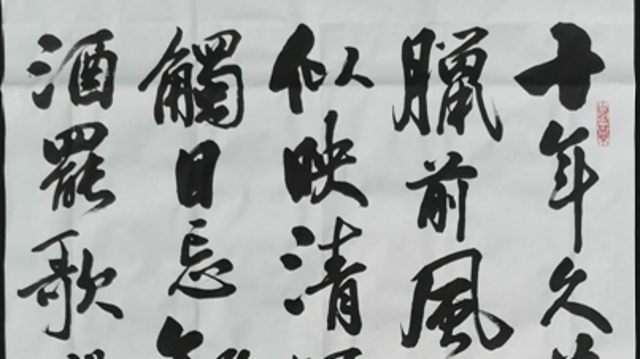 十年久
臘前風
似映清
觸日忘
酒罷歌